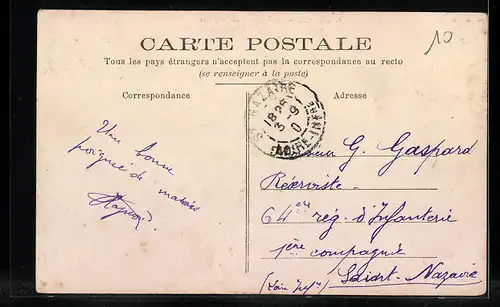 10
CARTE POSTALE
Tous les pays étrangers n'acceptent pas la correspondance au recto
(se renseigner à la poste)
Correspondance
Adresse
NAZAIRE
18
3 -9
LOIRE-INFRE
Une bonne
poignée de mains
G. Gaspard
Réserviste
64ème rég. d'Infanterie
1ère compagnie
Saint-Nazaire
(Loire Infre)